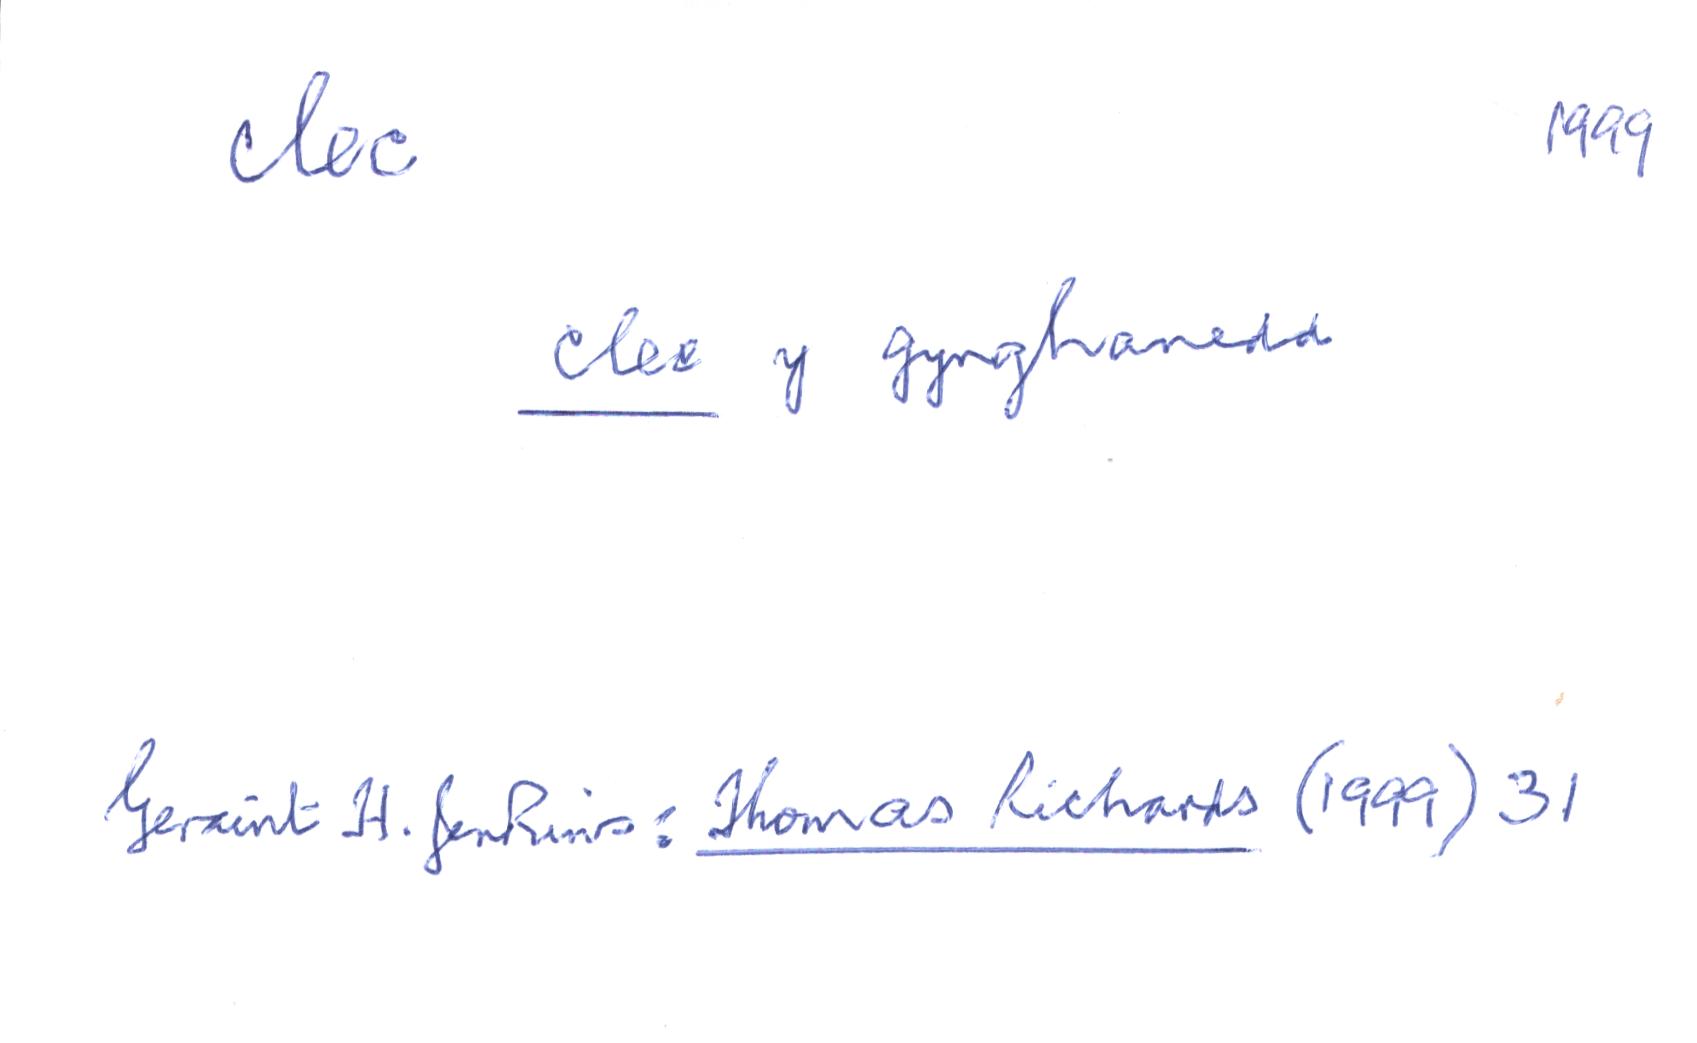 clec 1999
clec y gynghanedd
Geraint H. Jenkins: Thomas Richards (1999) 31